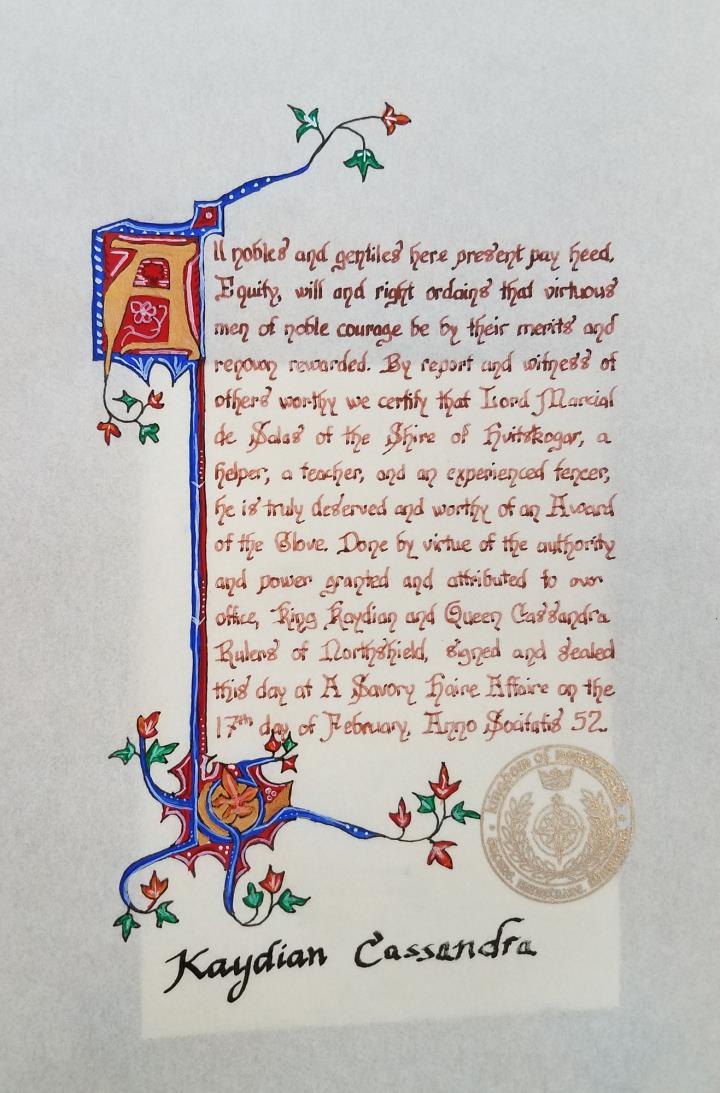 All nobles and gentiles here present pay heed.
Equity, will and right ordains that virtuous
men of noble courage be by their merits and
renown rewarded. By report and witness of
others worthy we certify that Lord Marcial
de Salas of the Shire of Hvitskogar, a
helper, a teacher, and an experienced fencer,
he is truly deserved and worthy of an Award
of the Glove. Done by virtue of the authority
and power granted and attributed to our
office, King Kaydian and Queen Cassandra
Rulers of Northshield, signed and sealed
this day at A Savory Haire Affaire on the
17th day of February, Anno Socitatis 52.
Kingdom of Northshield
Kaydian Cassandra